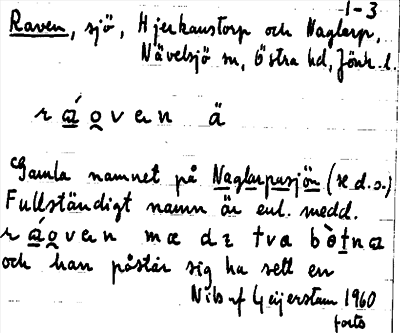 1-3
Raven, sjö, Hjerkanstorp och Naglarp,
Nävelsjö sn, Östra hd, Jönk. l.
r á̱o̯van ä
Gamla namnet på Naglarpasjön (se d.o.)
Fullständigt namn är enl. medd.
r á̱o̯van mæ də tva bò̱tna
och han påstår sig ha sett en
Nils af Geijerstam 1960
forts